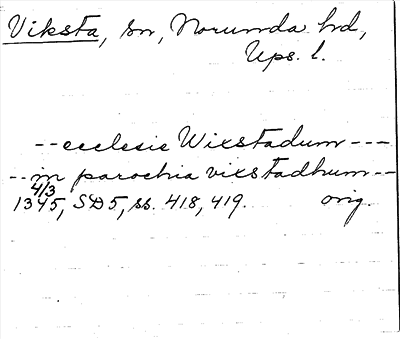 Viksta, sn, Norunda hd,
Ups. l.
--ecclesie Wixstadum---
--in parochia vixstadhum--
4/3
1345, SD5, ss. 418, 419. orig.